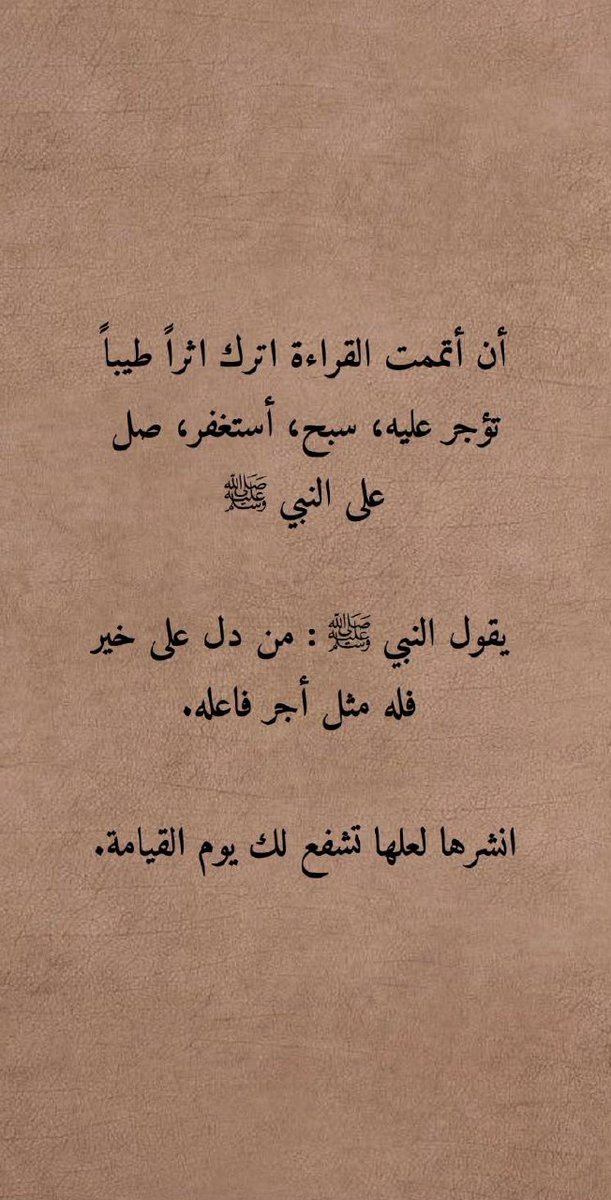 أن أتممت القراءة اترك اثراً طيباً
تؤجر عليه، سبح، أستغفر، صل
على النبي ﷺ
يقول النبي ﷺ : من دل على خير
فله مثل أجر فاعله.
انشرها لعلها تشفع لك يوم القيامة.